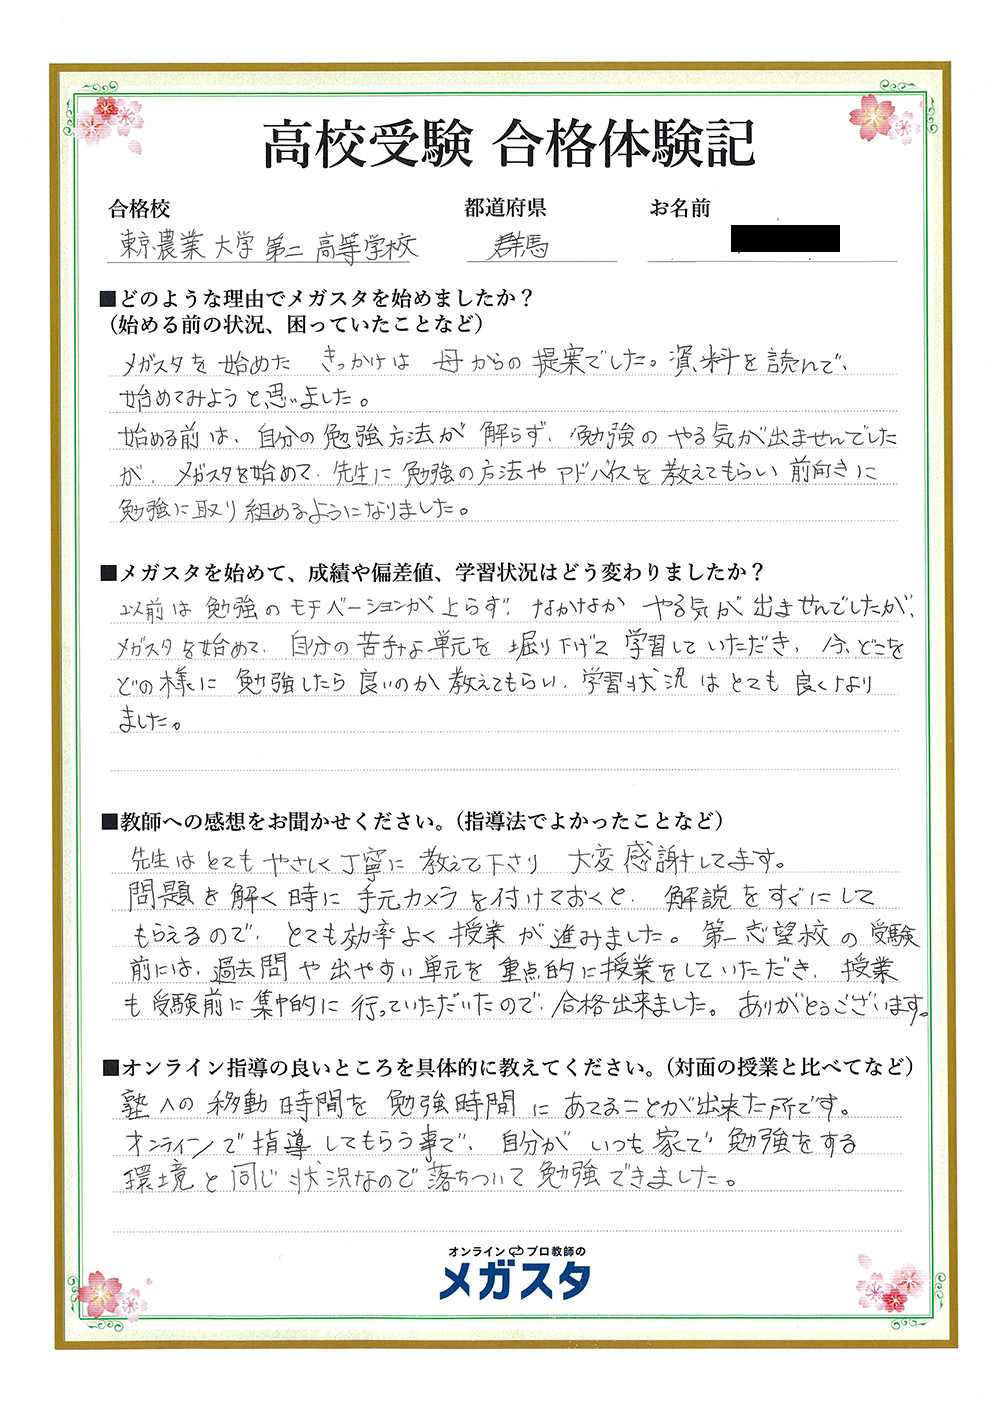 高校受験 合格体験記
合格校 都道府県 お名前
東京農業大学第二高等学校 群馬
■どのような理由でメガスタを始めましたか？
（始める前の状況、困っていたことなど）
メガスタを始めたきっかけは母からの提案でした。資料を読んで、
始めてみようと思いました。
始める前は、自分の勉強方法が解らず、勉強のやる気が出ませんでした
が、メガスタを始めて、先生に勉強の方法やアドバイスを教えてもらい前向きに
勉強に取り組めるようになりました。
■メガスタを始めて、成績や偏差値、学習状況はどう変わりましたか？
以前は勉強のモチベーションが上らず、なかなかやる気が出ませんでしたが、
メガスタを始めて、自分の苦手な単元を堀り下げて学習していただき、今、どこを
どの様に勉強したら良いのか教えてもらい、学習状況はとても良くなり
ました。
■教師への感想をお聞かせください。（指導法でよかったことなど）
先生はとてもやさしく丁寧に教えて下さり大変感謝してます。
問題を解く時に手元カメラを付けておくと、解説をすぐにして
もらえるので、とても効率よく授業が進みました。第一志望校の受験
前には、過去問や出やすい単元を重点的に授業をしていただき、授業
も受験前に集中的に行っていただいたので、合格出来ました。ありがとうございます。
■オンライン指導の良いところを具体的に教えてください。（対面の授業と比べてなど）
塾への移動時間を勉強時間にあてることが出来た所です。
オンラインで指導してもらう事で、自分がいつも家で勉強をする
環境と同じ状況なので落ちついて勉強できました。
オンライン プロ教師の
メガスタ